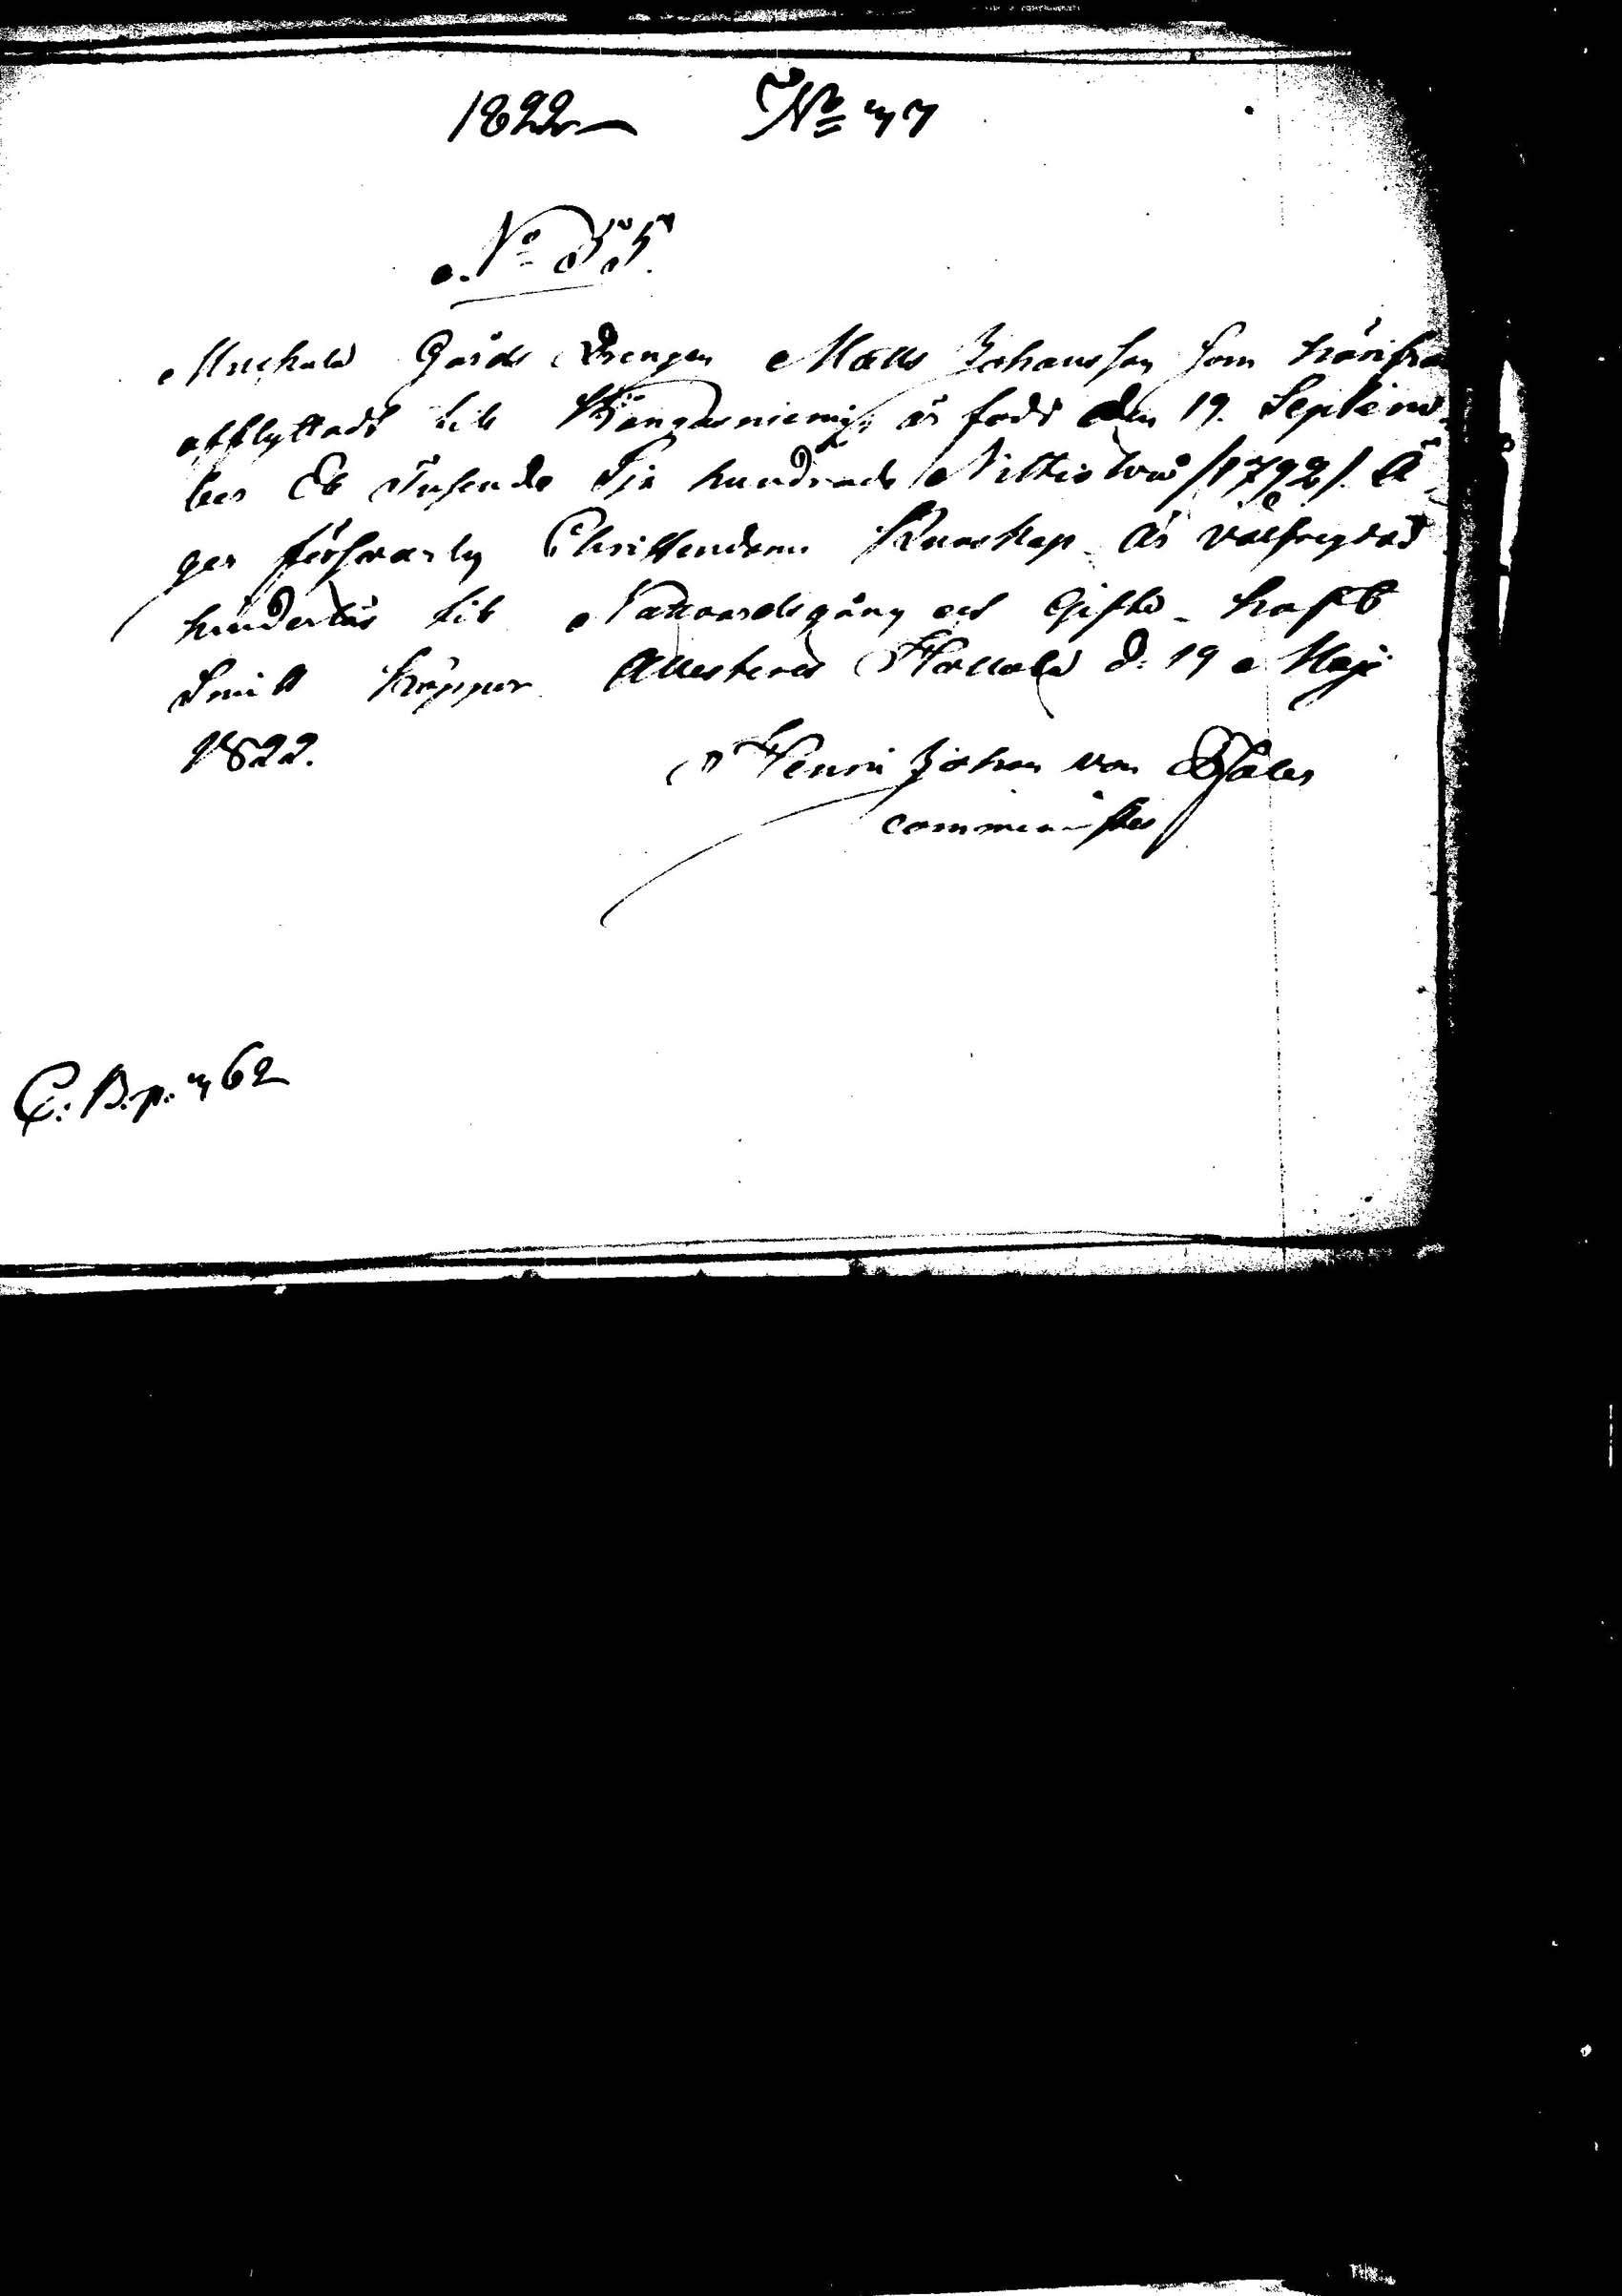 1822 No 47
No 55.
Gårds Drengen Matts Johansson som härifrå
afflyttadt till Kangasniemi, är född den 19. Septem
ber Et Tusende Sju hundrade Nittio två /1792/. Ä
ger försvarlig Christendoms Kunskap är välfreydad
hinderlös till Nattvardsgång och Gifte - haft
Smitt koppor Attesteras Hollola d. 19 Maji
1822.
Henric Johan von
comminister
C. B. p. 462